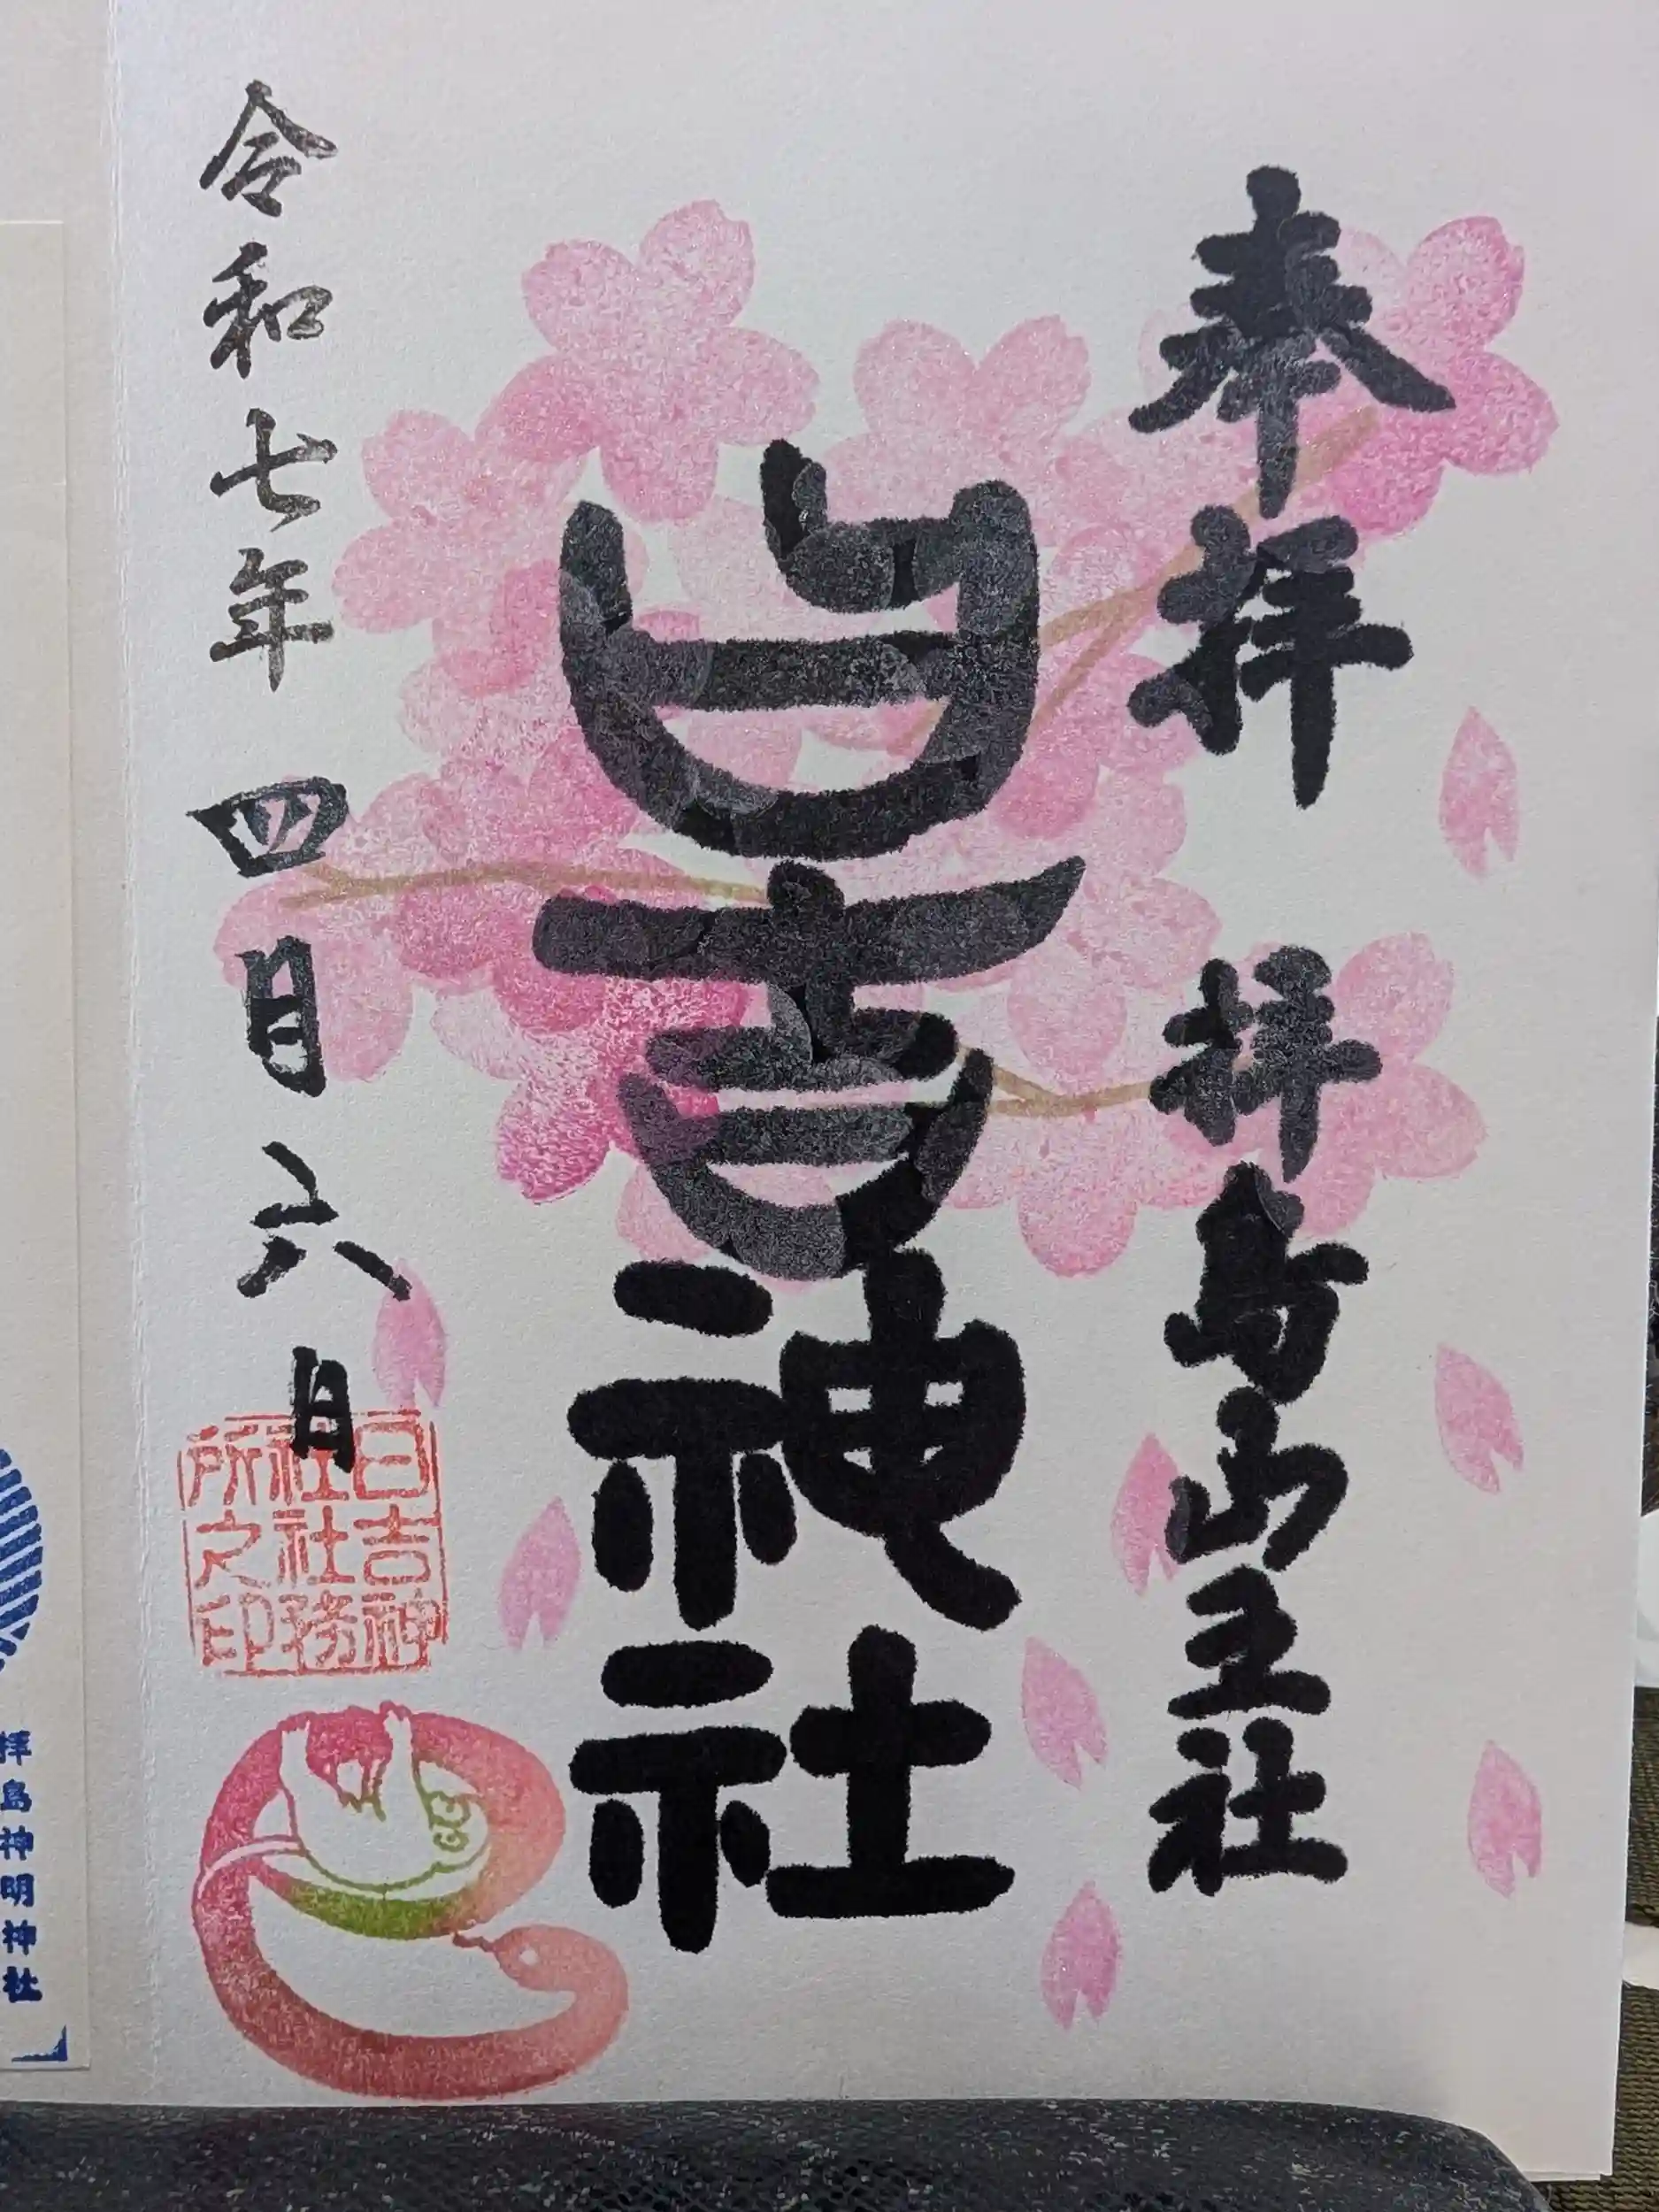 奉拝 拝島山王社
日吉神社
令和七年 四月 六日
日吉神
社社務
所之印
拝島神明神社